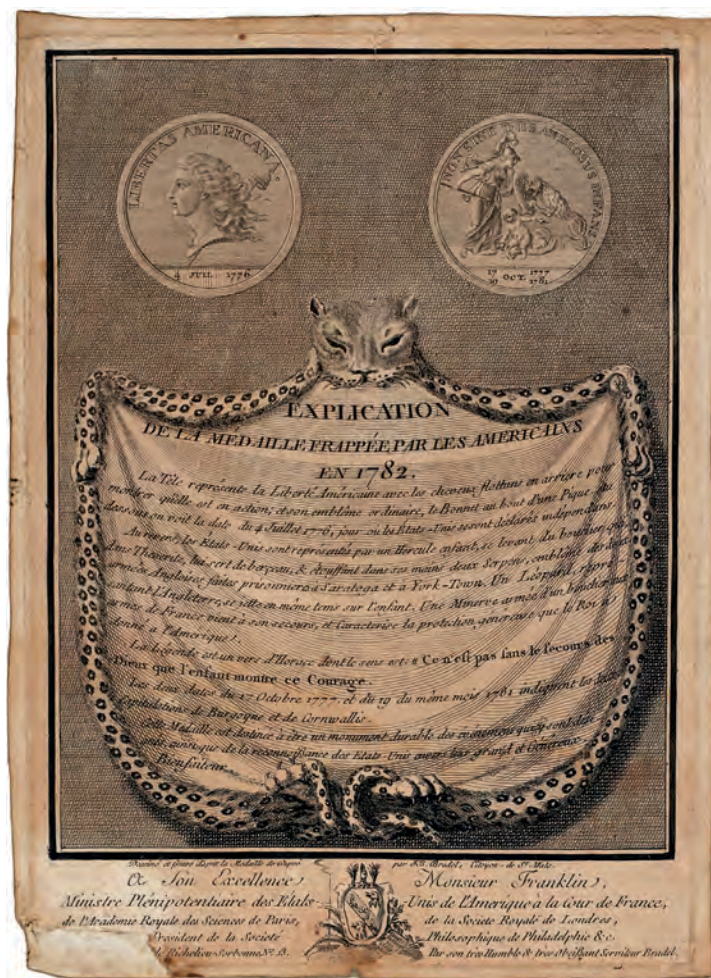 LIBERTAS AMERICANA.
4 JUIL. 1776.
NON SINE DIIS ANIMOSUS INFANS.
17 19 OCT. 1777 1781
EXPLICATION
DE LA MEDAILLE FRAPPÉE PAR LES AMERICAINS
EN 1782.
La Tête représente la Liberté Américaine avec les cheveux flottans en arriere pour
montrer qu'elle est en action; et son emblême ordinaire, le Bonnet au bout d'une Pique. Au
dessous on voit la date du 4 Juillet 1776, jour où les Etats-Unis se sont déclarés indépendans.
Au revers, les Etats-Unis sont représentés par un Hercule enfant, se levant du bouclier qui,
dans Théocrite, lui sert de berçeau, & étouffant dans ses mains deux Serpens, emblême des deux
armées Angloises faites prisonnieres à Saratoga et à York-Town. Un Léopard, repré-
sentant l'Angleterre, se jette en même tems sur l'enfant. Une Minerve armée d'un bouclier aux
armes de France vient à son secours, et Caractérise la protection généreuse que le Roi a
donné à l'Amerique.
La Légende est un vers d'Horace dont le sens est: « Ce n'est pas sans le secours des
Dieux que l'enfant montre ce Courage.
Les deux dates du 17 Octobre 1777. et du 19 du même mois 1781 indiquent les deux
capitulations de Burgogne et de Cornwallis.
Cette Médaille est destinée à être un monument durable des événemens qui y sont dési-
gnés, ainsi que de la reconnoissance des Etats-Unis envers leur grand et Généreux
Bienfaiteur.
Dessiné et Gravé d'après la Medaille de Dupré par J.B. Bradel, Citoyen de St. Malo.
A Son Excellence Monsieur Franklin,
Ministre Plénipotentiaire des Etats-Unis de l'Amerique à la Cour de France,
de l'Academie Royale des Sciences de Paris, de la Societé Royale de Londres,
Président de la Societé Philosophique de Philadelphie &c.
de Richelieu-Sorbonne No. 13. Par son très Humble & très Obéissant Serviteur Bradel.